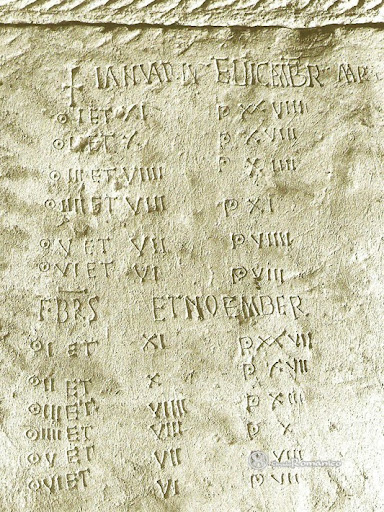 + IANVARII E
OI ET XI P XXVIII
OII ET X P XVIII
OIII ET VIIII P XIIII
OIIII ET VIII P XI
OV ET VII P VIIII
OVI ET VI P VIII
FBRS ET NOEMBER
OI ET XI P XXVII
OII ET X P XVII
OIII ET VIIII P XIII
OIIII ET VIII P X
OV ET VII P VIII
OVI ET VI P VII
románico